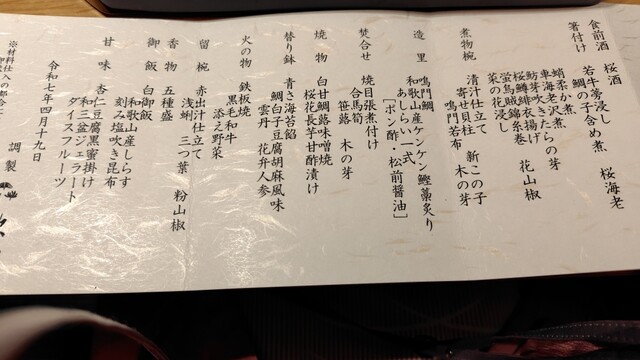 食前酒 桜酒
箸付け 若牛蒡浸し 桜海老
鯛の子含め煮
蛸柔か煮
車海老沢煮
鮴芽吹きたらの芽
桜鱒緋衣揚げ
蛍烏賊錦糸巻 花山椒
菜の花浸し
煮物椀 清汁仕立て 新この子
寄せ貝柱 木の芽
鳴門若布
造里 鳴門鯛
和歌山産ケンケン鰹藁炙り
あしらい一式
[ポン酢・松前醤油]
焚合せ 焼目張煮付け
合馬筍
笹蕗 木の芽
焼物 白甘鯛蕗味噌焼
桜花長芋甘酢漬け
替り鉢 青さ海苔餡
鯛白子豆腐胡麻風味
雲丹 花弁人参
火の物 鉄板焼
黒毛和牛
添え野菜
留椀 赤出汁仕立て
浅蜊 三つ葉 粉山椒
香物 五種盛
御飯 白御飯
和歌山産しらす
刻み塩吹き昆布
甘味 杏仁豆腐黒蜜掛け
和三盆ジェラート
ダイスフルーツ
令和七年四月十九日
調製
※材料仕入の都合